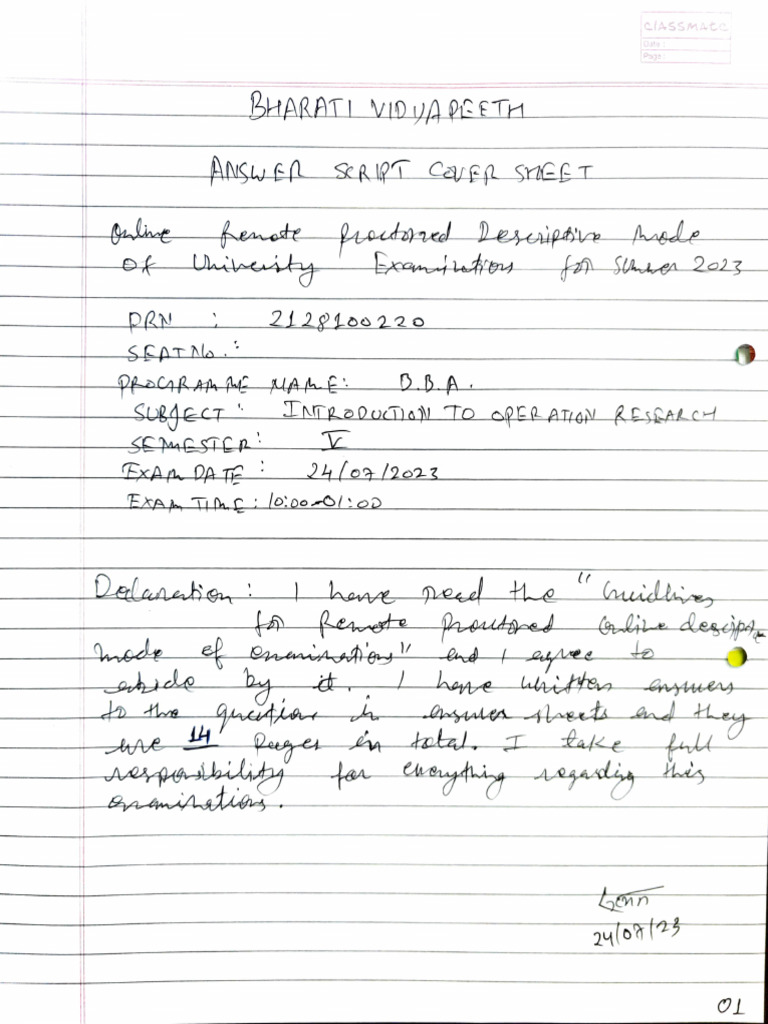 CLASSMATE
Date :
Page :
BHARATI VIDYAPEETH
ANSWER SCRIPT COVER SHEET
Online Remote Proctored Descriptive Mode
Of University Examinations for Summer 2023
PRN : 2128100220
SEAT No. :
PROGRAMME NAME: B.B.A.
SUBJECT : INTRODUCTION TO OPERATION RESEARCH
SEMESTER : V
EXAM DATE : 24/07/2023
EXAM TIME : 10:00-01:00
Declaration : I have read the "Guidlines
for Remote Proctored Online descriptive
mode of examinations" and I agree to
abide by it. I have written answers
to the questions in answer sheets and they
are 14 Pages in total. I take full
responsibility for everything regarding this
examinations.
24/07/23
01